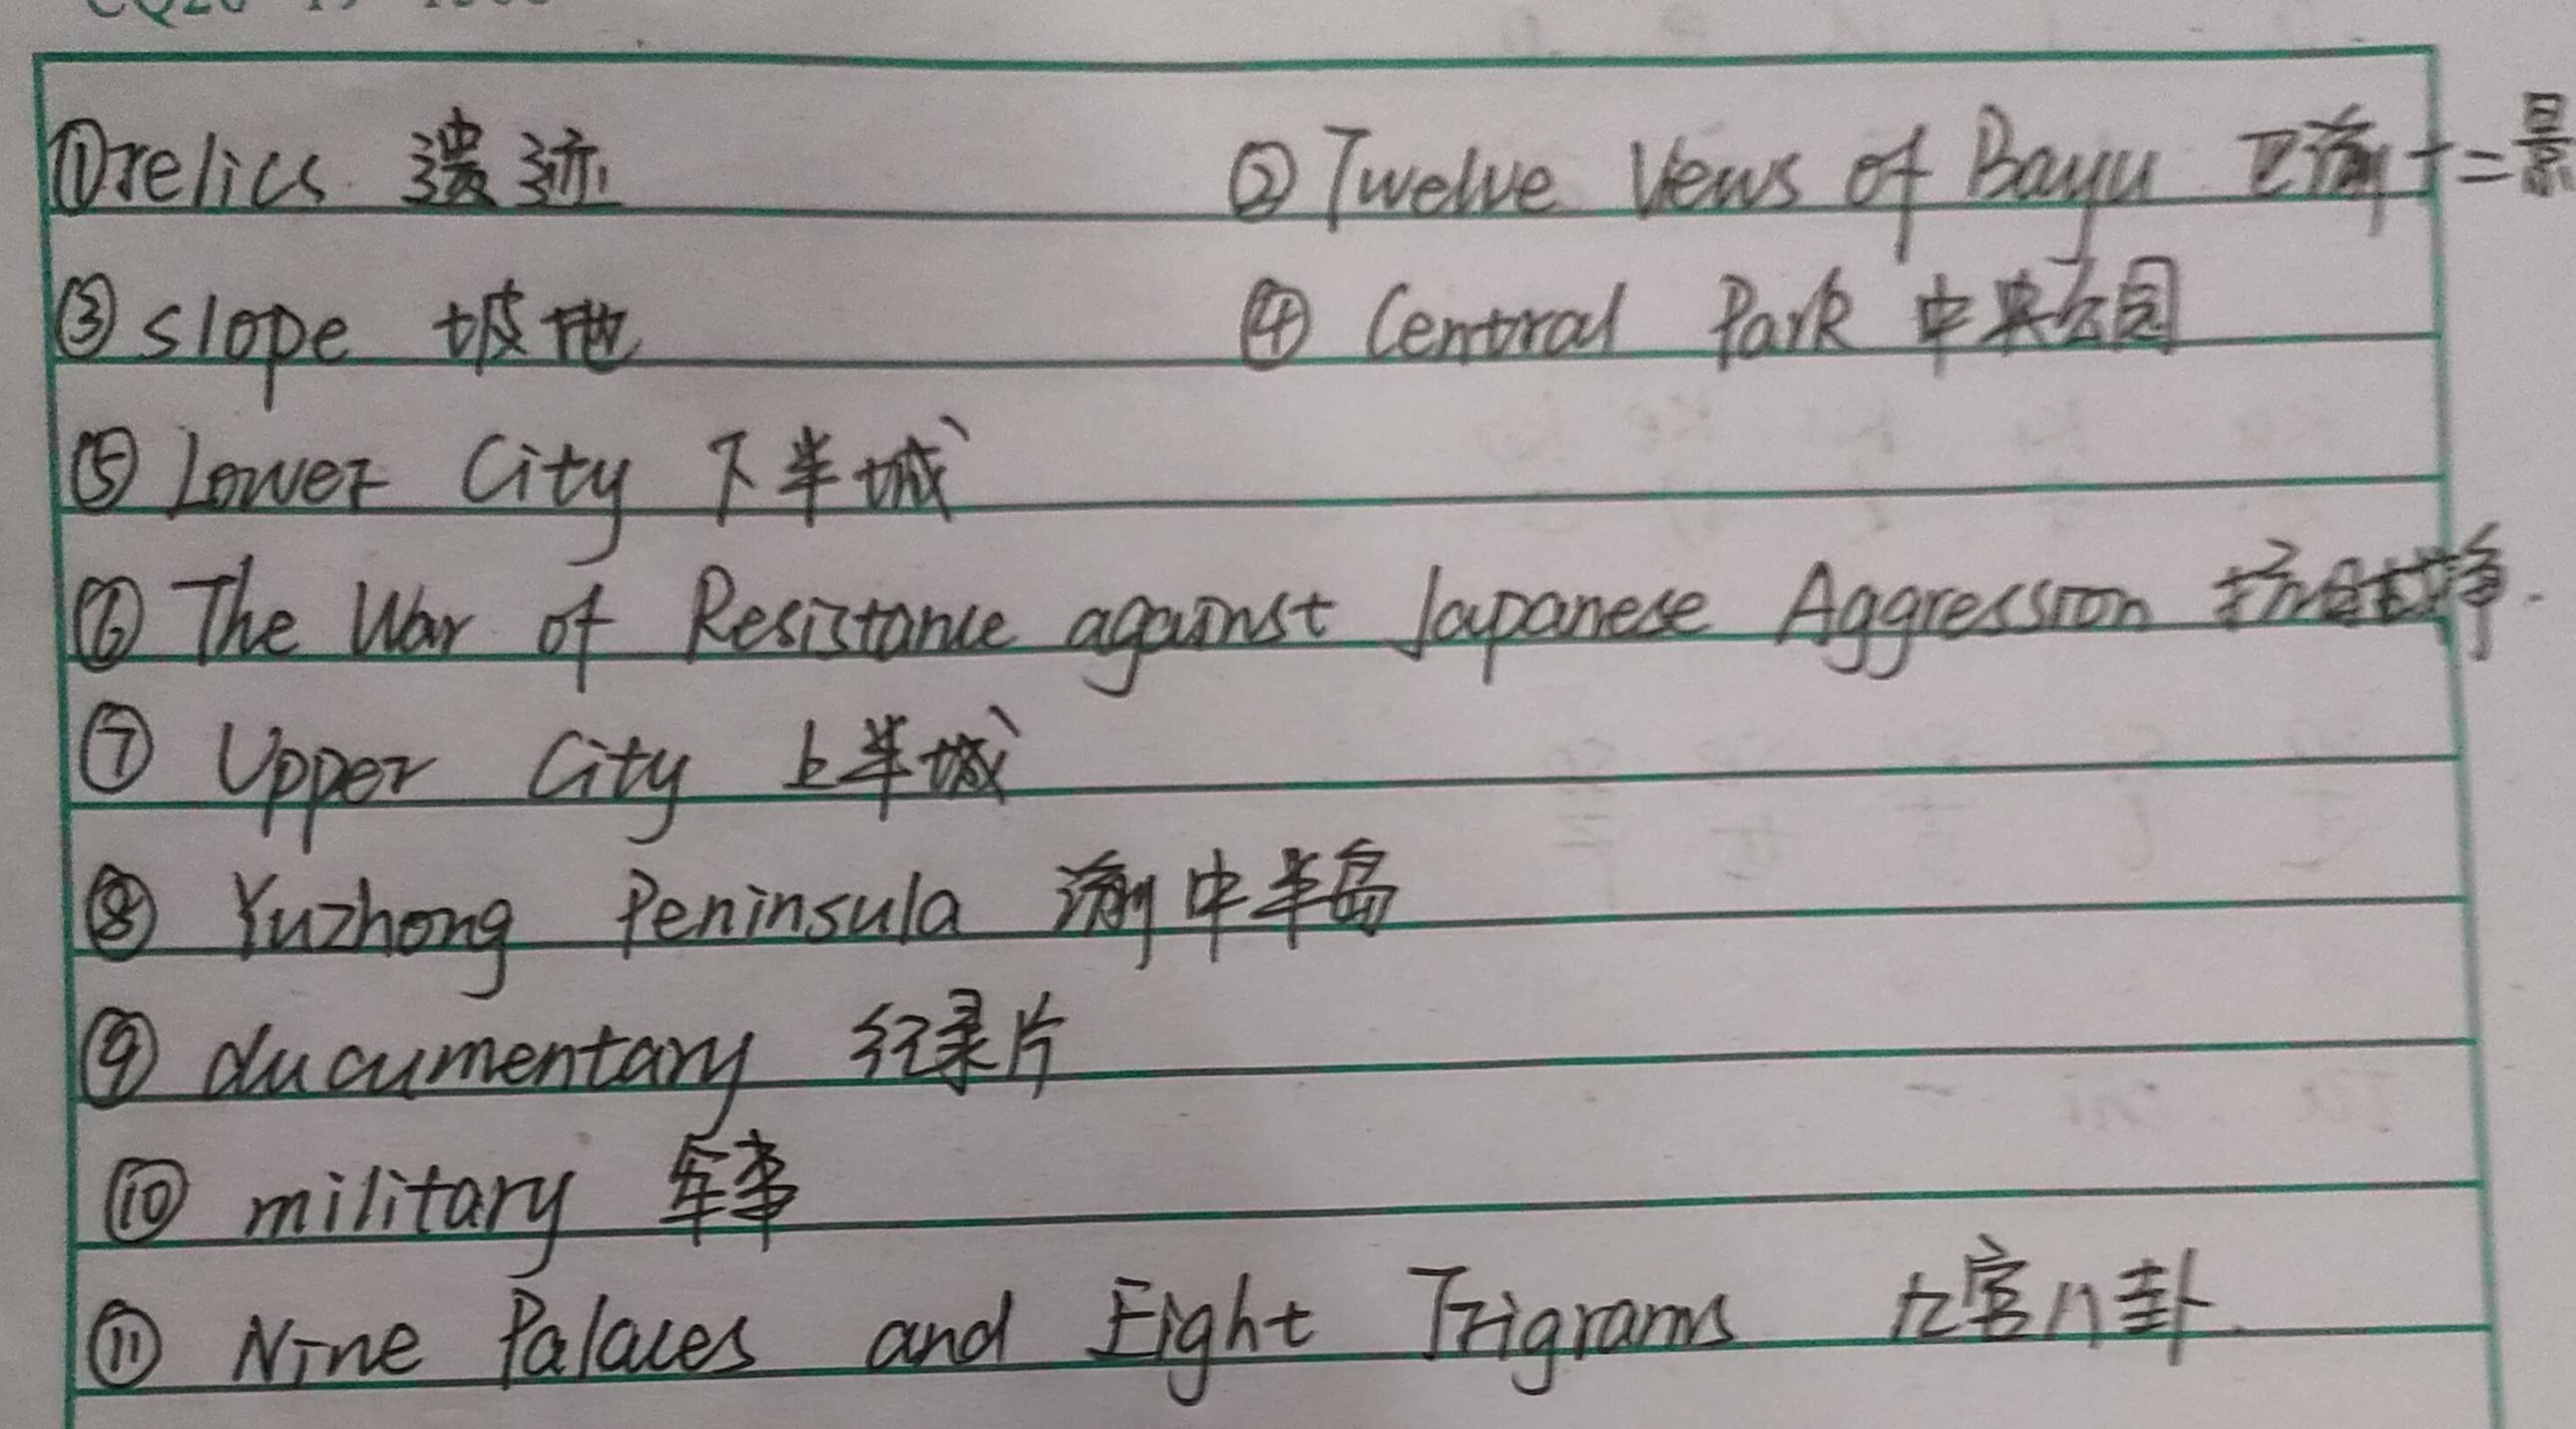 ①relics 遗迹 ②Twelve Views of Bayu 巴渝十二景
③slope 坡地 ④Central Park 中央公园
⑤Lower City 下半城
⑥The War of Resistance against Japanese Aggression 抗日战争.
⑦Upper City 上半城
⑧Yuzhong Peninsula 渝中半岛
⑨ducumentary 纪录片
⑩military 军事
⑪Nine Palaces and Eight Trigrams 九宫八卦.